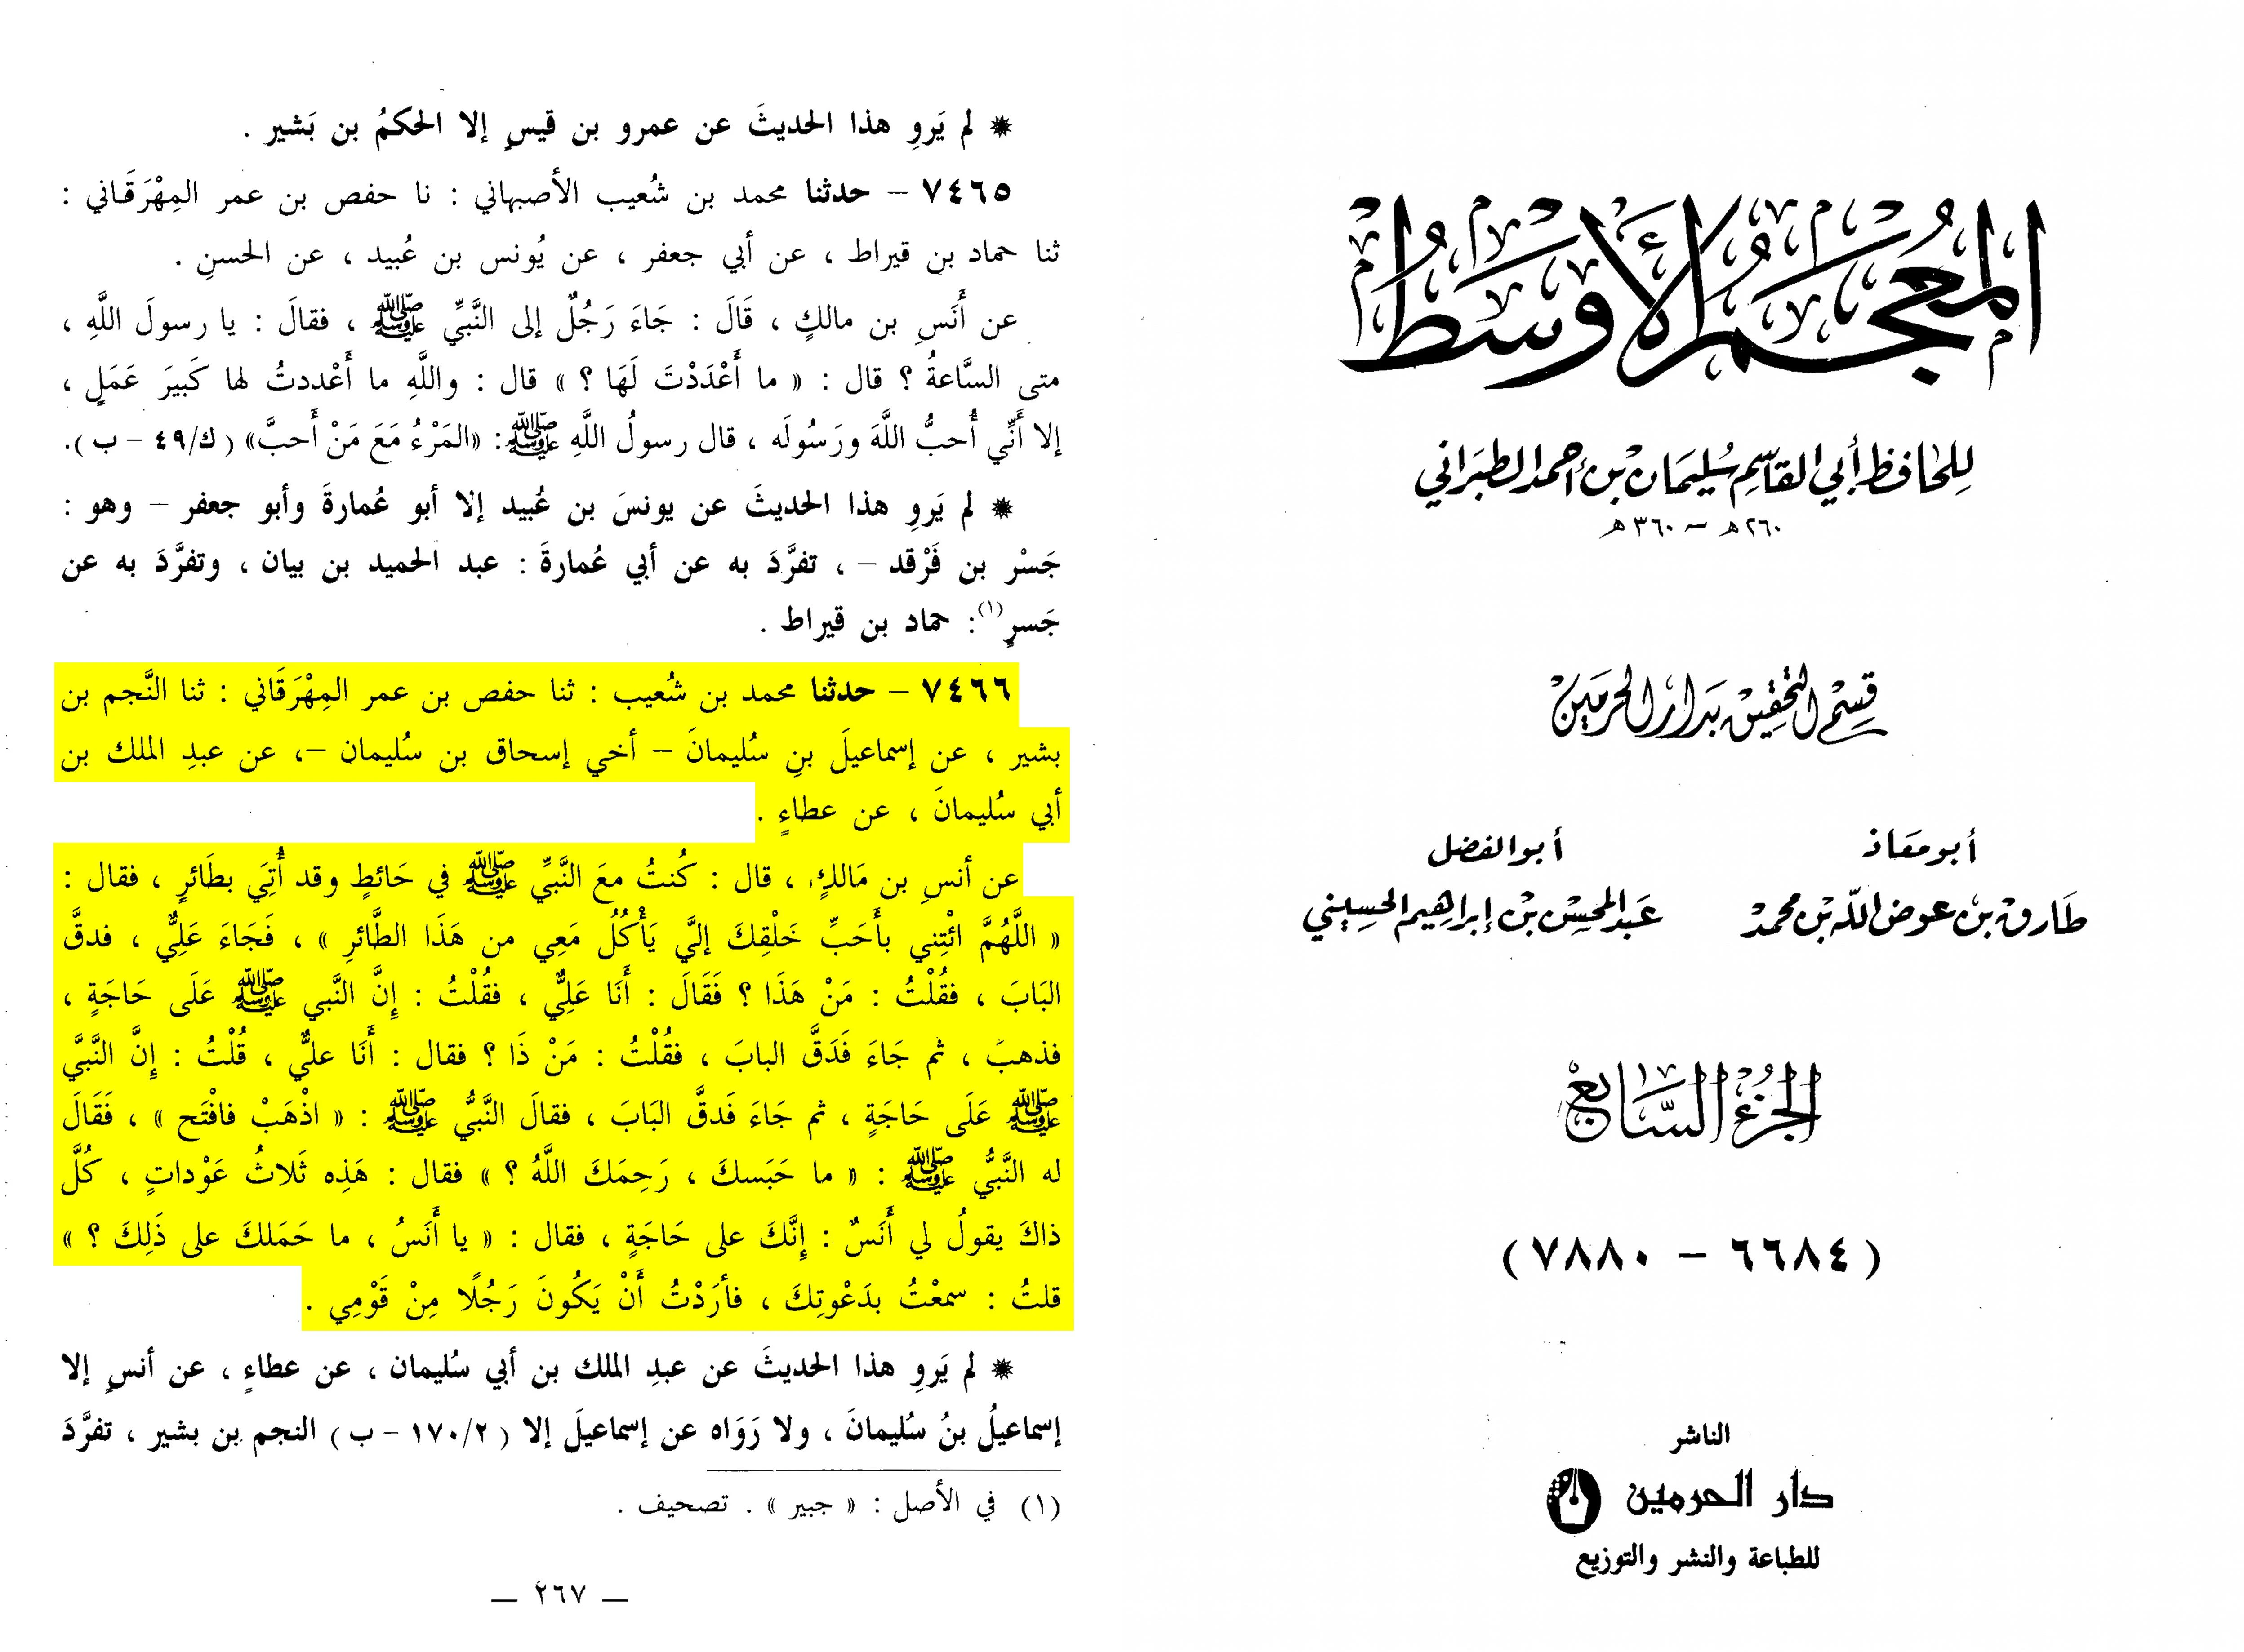 المعجم الأوسط
للحافظ أبي القاسم سليمان بن أحمد الطبراني
٢٦٠هـ – ٣٦٠هـ
قسم التحقيق بدار الحرمين
أبو معاذ
طارق بن عوض الله بن محمد
أبو الفضل
عبد المحسن بن إبراهيم الحسيني
الجزء السابع
( ٦٦٨٤ – ٧٨٨٠ )
الناشر
دار الحرمين
للطباعة والنشر والتوزيع
* لم يَروِ هذا الحديثَ عن عمرو بن قيسٍ إلا الحكمُ بن بَشير .
٧٤٦٥ – حدثنا محمد بن شُعيب الأصبهاني : نا حفص بن عمر المِهْرَقَاني :
ثنا حماد بن قيراط ، عن أبي جعفر ، عن يُونس بن عُبيد ، عن الحسنِ .
عن أَنَسِ بن مالكٍ ، قَالَ : جَاءَ رَجُلٌ إلى النَّبيِّ ﷺ ، فقالَ : يا رسولَ اللَّهِ ،
متى السَّاعةُ ؟ قال : « ما أَعْدَدْتَ لَهَا ؟ » قال : واللَّهِ ما أَعْددتُ لها كَبيرَ عَمَلٍ ،
إلا أَنِّي أُحبُّ اللَّهَ ورَسُولَه ، قال رسولُ اللَّهِ ﷺ: «المَرْءُ مَعَ مَنْ أَحبَّ» ( ك/٤٩ – ب ).
* لم يَروِ هذا الحديثَ عن يونسَ بن عُبيد إلا أبو عُمارةَ وأبو جعفر – وهو :
جَسْر بن فَرْقد – ، تفرَّدَ به عن أبي عُمارةَ : عبد الحميد بن بيان ، وتفرَّدَ به عن
جَسرٍ(١): حماد بن قيراط .
٧٤٦٦ – حدثنا محمد بن شُعيب : ثنا حفص بن عمر المِهْرَقَاني : ثنا النَّجم بن
بشير ، عن إسماعيلَ بنِ سُليمانَ – أخي إسحاق بن سُليمان –، عن عبدِ الملك بن
أبي سُليمانَ ، عن عطاءٍ .
عن أنسِ بن مَالكٍ ، قال : كُنتُ معَ النَّبيِّ ﷺ في حَائطٍ وقد أُتِيَ بطَائرٍ ، فقال :
« اللَّهُمَّ ائْتِني بأَحَبِّ خَلْقِكَ إليَّ يَأْكُلُ مَعِي من هَذَا الطَّائرِ » ، فَجَاءَ عَلِيٌّ ، فدقَّ
البَابَ ، فقُلْتُ : مَنْ هَذَا ؟ فَقَالَ : أَنَا عَلِيٌّ ، فقُلْتُ : إِنَّ النَّبي ﷺ عَلَى حَاجَةٍ ،
فذهبَ ، ثم جَاءَ فَدَقَّ البابَ ، فقُلْتُ : مَنْ ذَا ؟ فقال : أَنَا عليٌّ ، قُلْتُ : إِنَّ النَّبيَّ
ﷺ عَلَى حَاجَةٍ ، ثم جَاءَ فَدقَّ البَابَ ، فقالَ النَّبيُّ ﷺ : « اذْهَبْ فافْتَح » ، فَقَالَ
له النَّبيُّ ﷺ : « ما حَبَسكَ ، رَحِمَكَ اللَّهُ ؟ » فقال : هَذِه ثَلاثُ عَوْداتٍ ، كُلَّ
ذاكَ يقولُ لي أَنَسٌ : إِنَّكَ على حَاجَةٍ ، فقال : « يا أَنَسُ ، ما حَمَلكَ على ذَلِكَ ؟ »
قلتُ : سمعْتُ بدَعْوتِكَ ، فأرَدْتُ أَنْ يَكُونَ رَجُلًا مِنْ قَوْمِي .
* لم يَروِ هذا الحديثَ عن عبدِ الملك بن أبي سُليمان ، عن عطاءٍ ، عن أنسٍ إلا
إسماعيلُ بنُ سُليمانَ ، ولا رَوَاه عن إسماعيلَ إلا ( ١٧٠/٢ – ب ) النجم بن بشير ، تفرَّدَ
(١) في الأصل : « جبير » . تصحيف .
— ٢٦٧ —